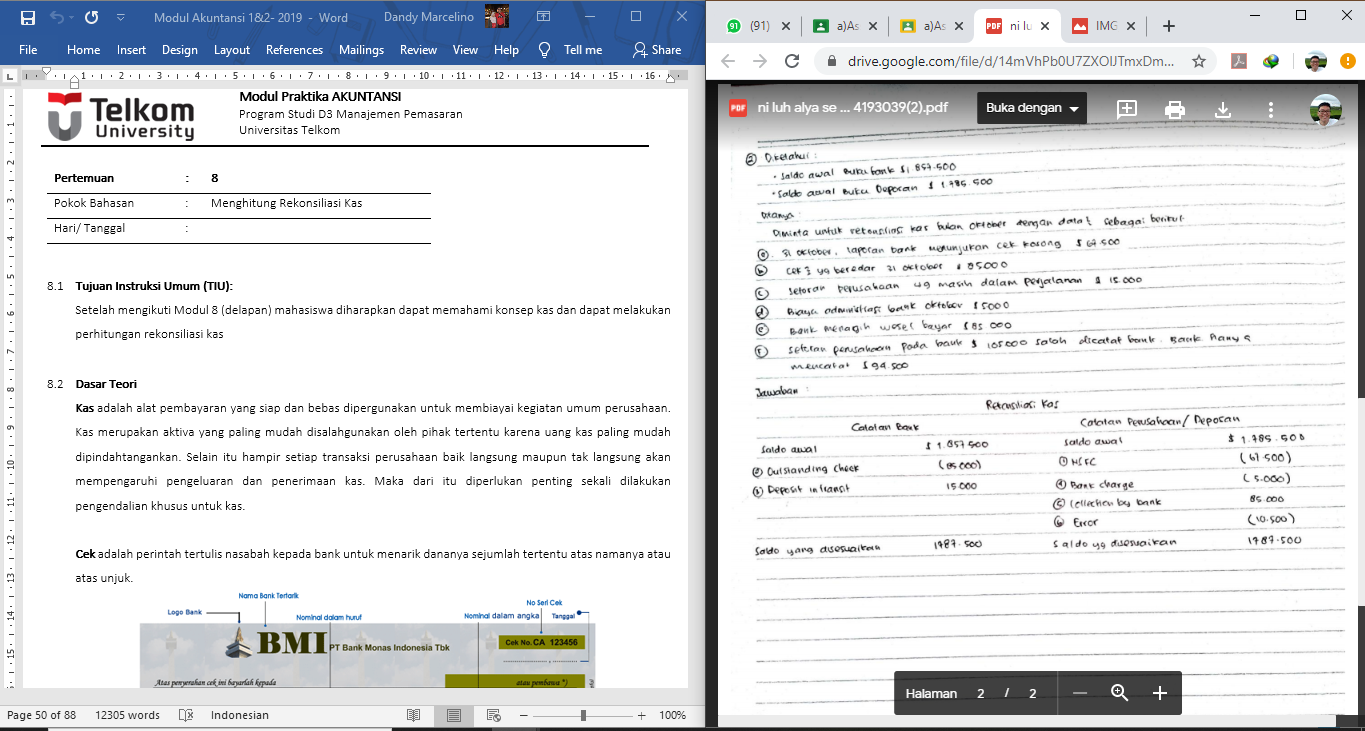 Modul Akuntansi 1&2- 2019 - Word
Dandy Marcelino
File Home Insert Design Layout References Mailings Review View Help Tell me Share
Telkom
University
Modul Praktika AKUNTANSI
Program Studi D3 Manajemen Pemasaran
Universitas Telkom
Pertemuan : 8
Pokok Bahasan : Menghitung Rekonsiliasi Kas
Hari/ Tanggal :
8.1 Tujuan Instruksi Umum (TIU):
Setelah mengikuti Modul 8 (delapan) mahasiswa diharapkan dapat memahami konsep kas dan dapat melakukan
perhitungan rekonsiliasi kas
8.2 Dasar Teori
Kas adalah alat pembayaran yang siap dan bebas dipergunakan untuk membiayai kegiatan umum perusahaan.
Kas merupakan aktiva yang paling mudah disalahgunakan oleh pihak tertentu karena uang kas paling mudah
dipindahtangankan. Selain itu hampir setiap transaksi perusahaan baik langsung maupun tak langsung akan
mempengaruhi pengeluaran dan penerimaan kas. Maka dari itu diperlukan penting sekali dilakukan
pengendalian khusus untuk kas.
Cek adalah perintah tertulis nasabah kepada bank untuk menarik dananya sejumlah tertentu atas namanya atau
atas unjuk.
Nama Bank Tertarik
Logo Bank
Nominal dalam huruf
No Seri Cek
Nominal dalam angka
Tanggal
BMI PT Bank Monas Indonesia Tbk
Cek No. CA 123456
Atas penyerahan cek ini bayarlah kepada
atau pembawa *)
Page 50 of 88 12305 words Indonesian 100%
(91)
a)As
a)As
ni lu
IMG
drive.google.com/file/d/14mVhPb0U7ZXOIJTmxDm...
ni luh alya se ... 4193039(2).pdf
Buka dengan
② Diketahui :
• Saldo awal Buku bank $1.857.500
• Saldo awal Buku Deporan $ 1.785.500
Ditanya :
Diminta untuk rekonsiliasi kas bulan oktober dengan data² sebagai berikut
a. 31 oktober, laporan bank menunjukan cek kosong $ 67.500
b cek² yg beredar 31 oktober $ 85000
c Setoran perusahaan yg masih dalam perjalanan $ 15.000
d Biaya administrasi bank oktober $5000
e Bank menagih wesel bayar $85 000
f Setoran perusahaan pada bank $ 105000 salah dicatat bank. Bank Hanya
mencatat $94.500
Jawaban :
Rekonsiliasi Kas
Catatan Bank
Catatan Perusahaan/ Deporan
Saldo awal $ 1.857.500
Saldo awal $ 1.785.500
② Outstanding Check (85.000)
① NSFC (67.500)
③ Deposit in transit 15.000
④ Bank charge (5.000)
⑤ Collection by bank 85.000
⑥ Error (10.500)
Saldo yang disesuaikan 1787.500
Saldo yg disesuaikan 1787.500
Halaman 2 / 2